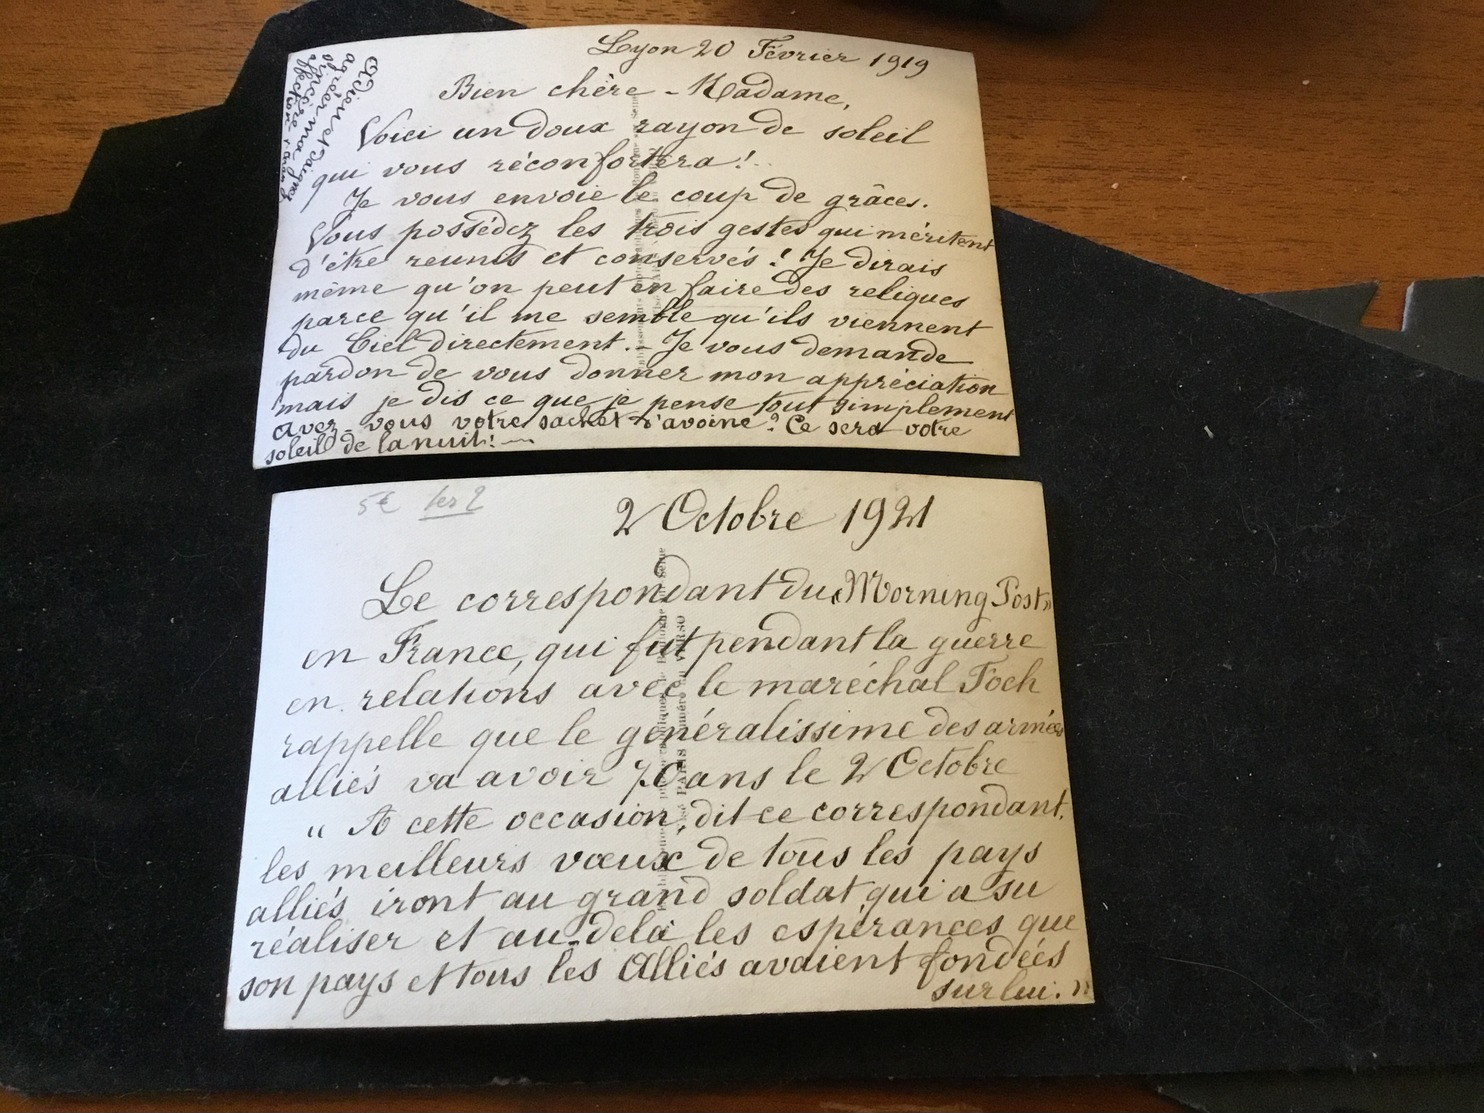 Lyon 20 Février 1919
Bien chère - Madame,
Voici un doux rayon de soleil
qui vous réconfortera !
Je vous envoie le coup de grâces.
Vous possédez les trois gestes qui méritent
d'être reunis et conservés ! Je dirais
même qu'on peut en faire des reliques
parce qu'il me semble qu'ils viennent
du Ciel directement. - Je vous demande
pardon de vous donner mon appréciation
mais je dis ce que je pense tout simplement
avez-vous votre sachet d'avoine ? Ce sera votre
soleil de la nuit ! —
Adieu et daignez
agréer ma
sincère
affection
5€ les 2
2 Octobre 1921
Le correspondant du « Morning Post »
en France, qui fut pendant la guerre
en relations avec le maréchal Foch
rappelle que le généralissime des armées
alliés va avoir 70 ans le 2 Octobre
" A cette occasion, dit ce correspondant,
les meilleurs vœux de tous les pays
alliés iront au grand soldat qui a su
réaliser et au-delà les espérances que
son pays et tous les Alliés avaient fondées
sur lui. "
PARIS
VERSO